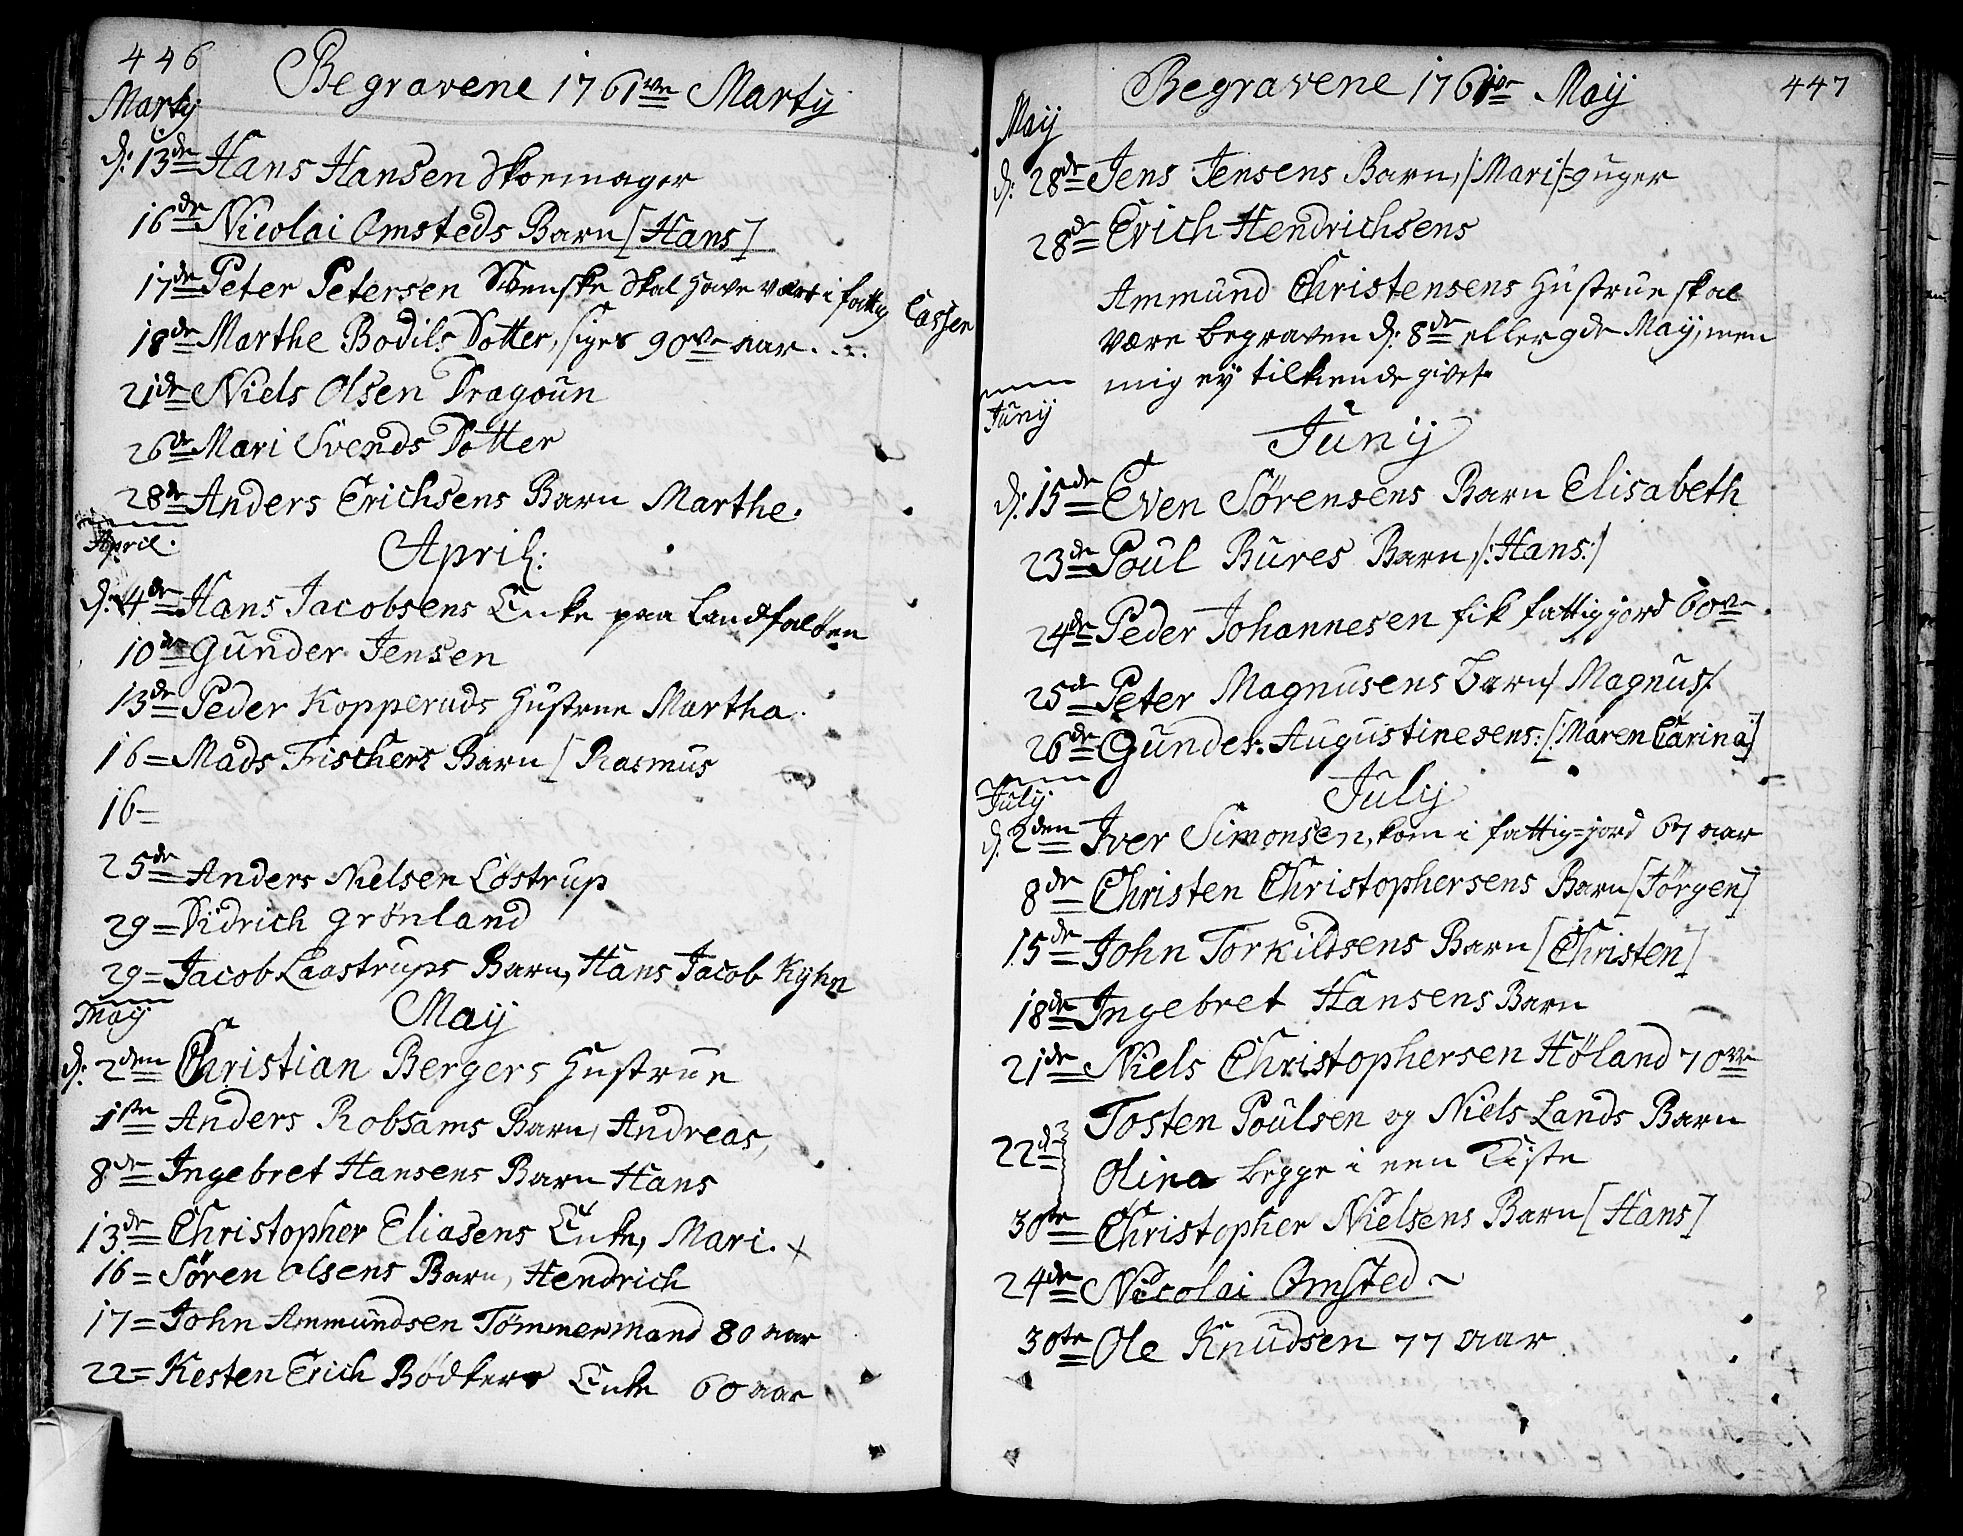 446
Begravene 1761ve Martij
Martij
d: 13de Hans Hansen Skoemager
16de Nicolai Omsteds Barn [Hans]
17de Peter Petersen Svenske skal have vært i fattig Cassen
18de Marthe Bodils Dotter, siges 90ve aar....
21de Niels Olsen Dragoun
26de Mari Svends Dotter
28de Anders Erichsens Barn Marthe.
April.
April:
d: 4de Hans Jacobsens Enke paa Landfaløen
10de Gunder Jensen
13de Peder Kopperuds Hustrue Martha.
16= Mads Fischers Barn [Rasmus
16=
25de Anders Nielsen Löstrup
29= Didrich Grönland
29= Jacob Laastrups Barn, Hans Jacob Kyhn
May
Maÿ
d: 2den Christian Bergers Hustrue
1ste Anders Robsams Barn, Andreas,
8de Ingebret Hansens Barn Hans
13de Christopher Eliasens Enke, Mari. +
16= Sören Olsens Barn, Hendrich
17= John Ammundsen Tömmermand 80 aar
22= Kesten Erich Bödkers Enke 60 aar
Begravene 1761ve Maÿ
447
Maÿ
d: 28de Jens Jensens Barn, /:Mari/=9uger
28de Erich Hendrichsens
Ammund Christensens Hustrue skal
være begraven d: 8de eller 9de Maÿ, men
mig eÿ tilkiende givet.
Junÿ
Junij
d: 15de Even Sörensens Barn Elisabeth
23de Poul Bures Barn, /:Hans:/
24de Peder Johannesen fik fattig jord 60ve.
25de Peter Magnusens Barn/ Magnus/.
26de Gunder. Augustinesens: [:Maren Carina]
Julÿ
Julij
d. 2den Iver Simonsen, kom i fattig=jord 67 aar
8de Christen Christophersens Barn [Jörgen]
15de John Torkildsens Barn [Christen]
18de Ingebret Hansens Barn
21de Niels Christophersen Höland 70ve
22de Tosten Poulsen og Niels Lands Barn
Olina begge i een Kiste
30te Christopher Nielsens Barn [Hans]
24de Nicolai Omsted ~
30te Ole Knudsen 77 aar.